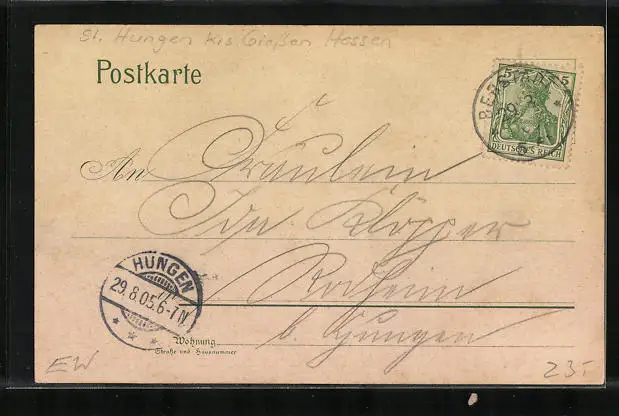 St. Hungen Krs. Gießen Hessen
Postkarte
5 5
DEUTSCHES REICH
An Fräulein
Ida Klöpper
Rodheim
b. Hungen
HUNGEN
29.8.05.6-7N
Wohnung
Straße und Hausnummer
EW
23.-